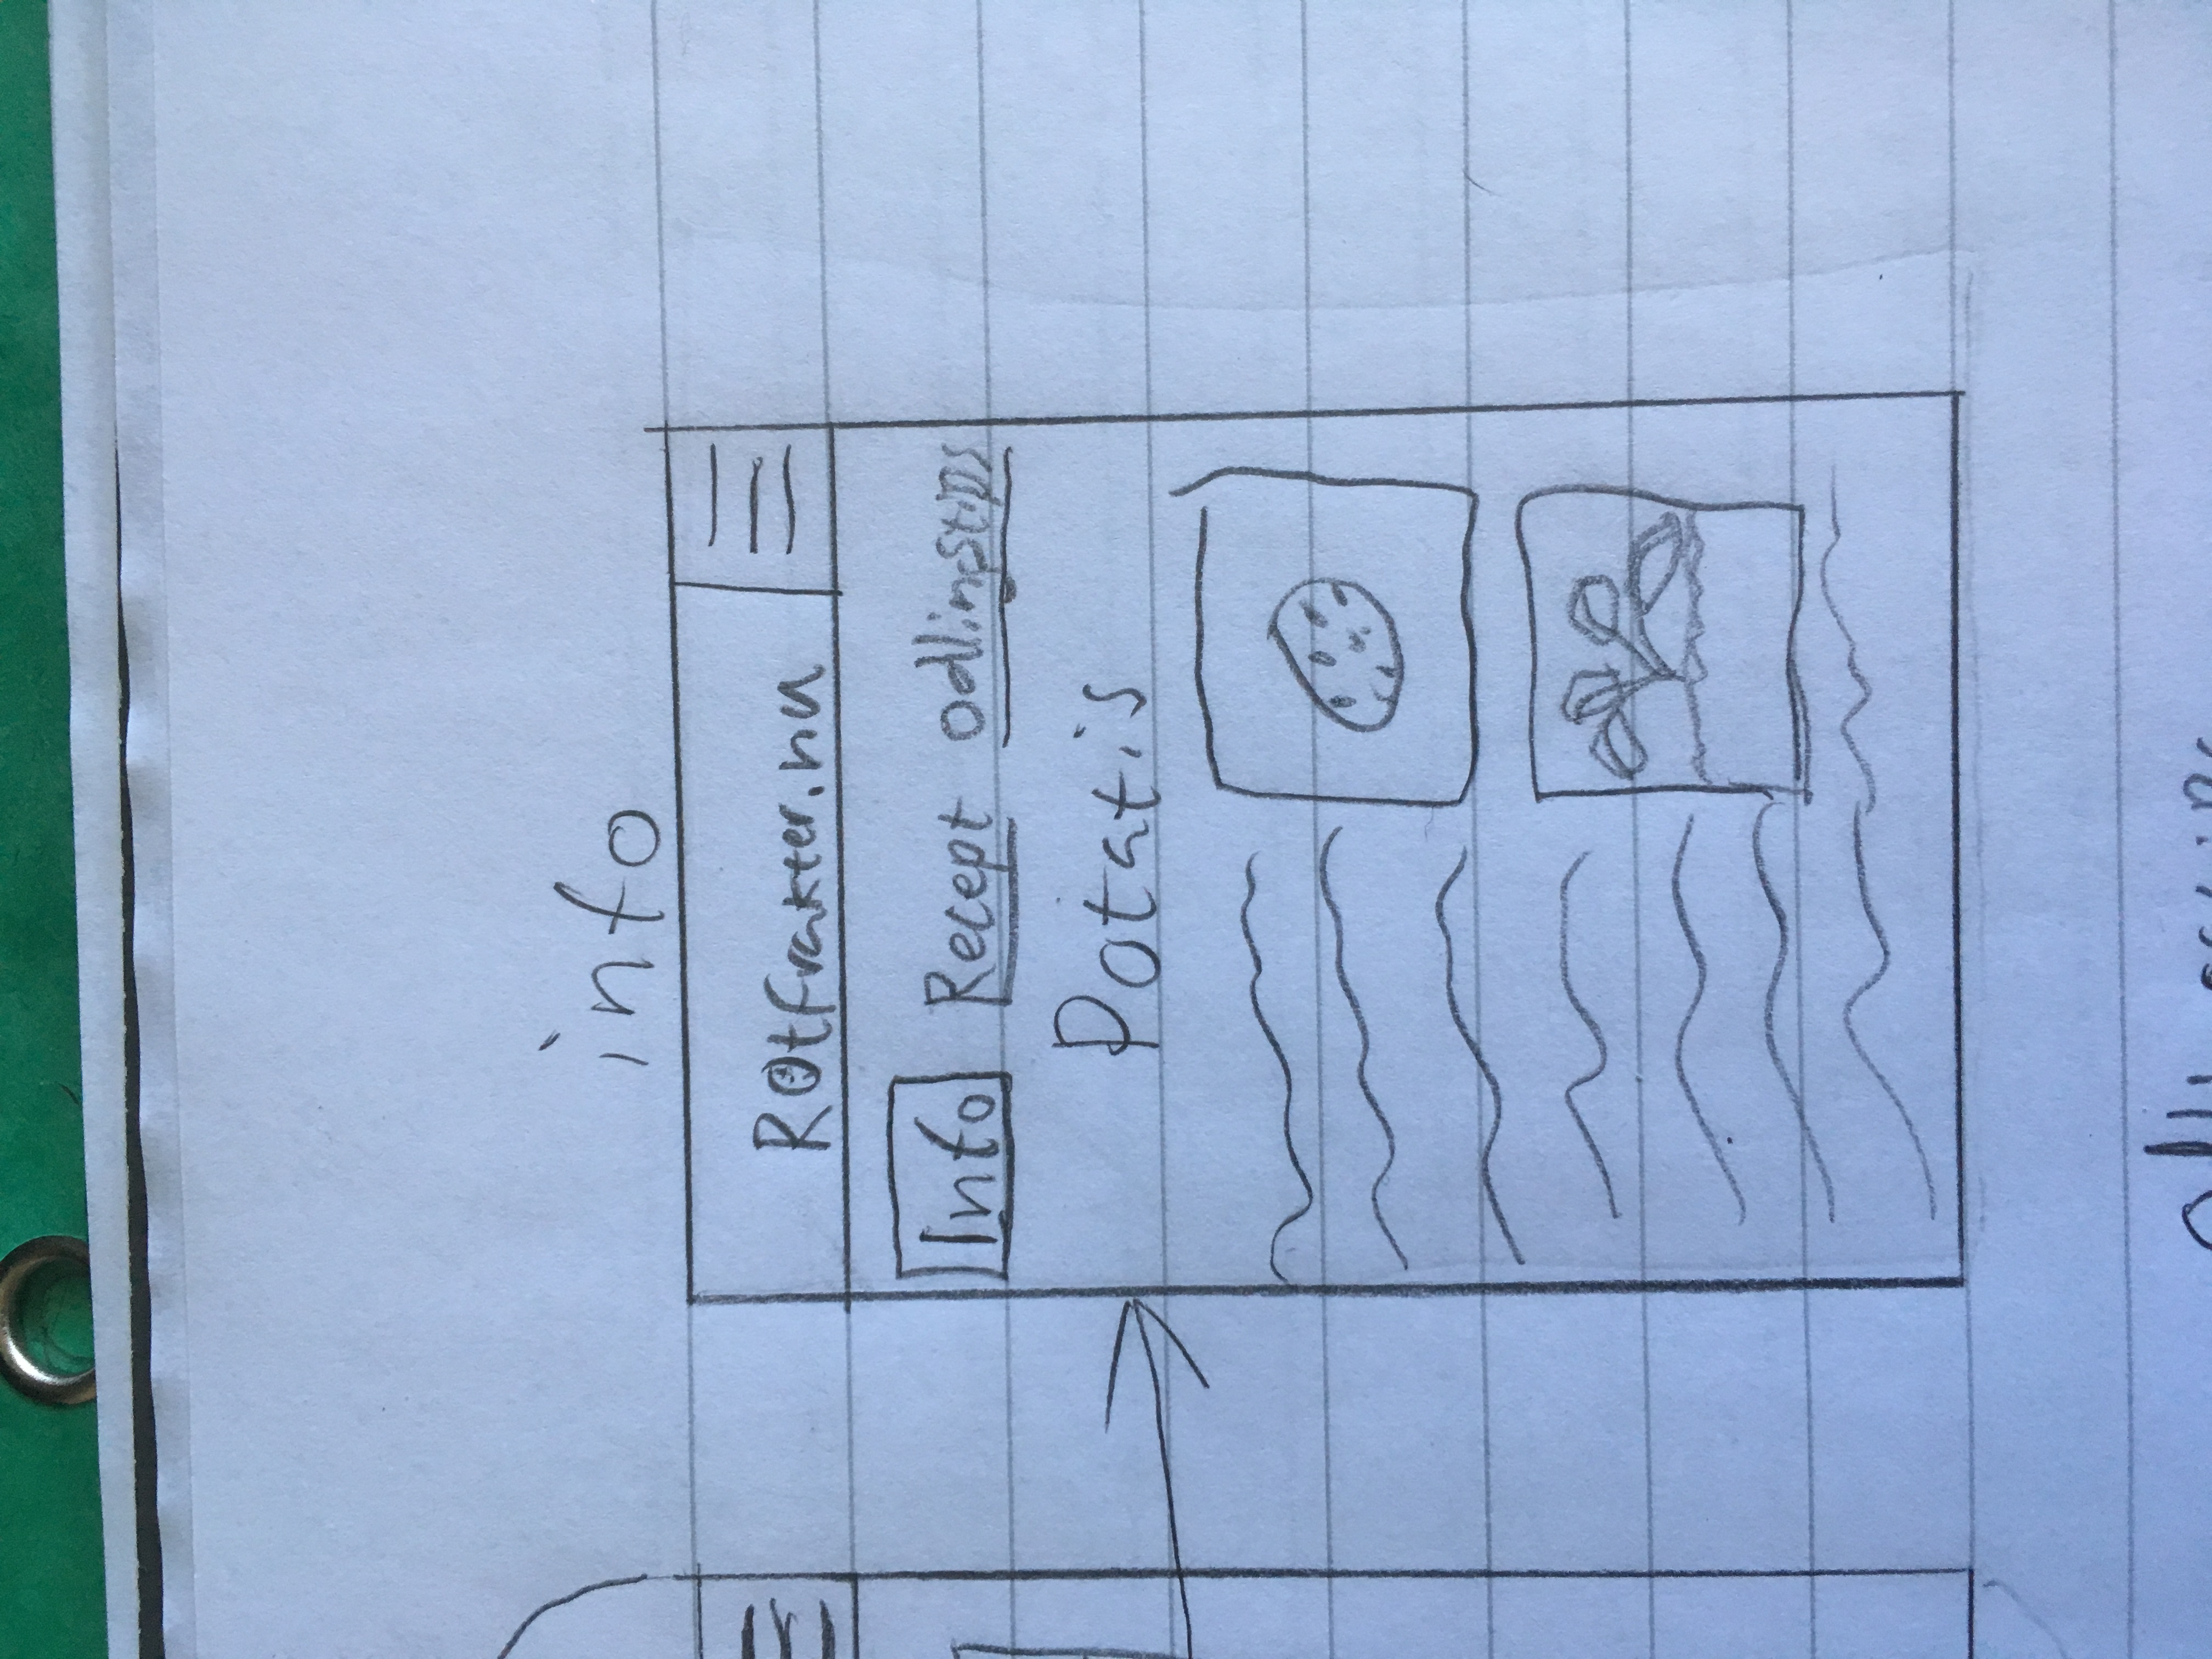 info
Rotfrakter.nu
Info Recept odlingstips
Potatis